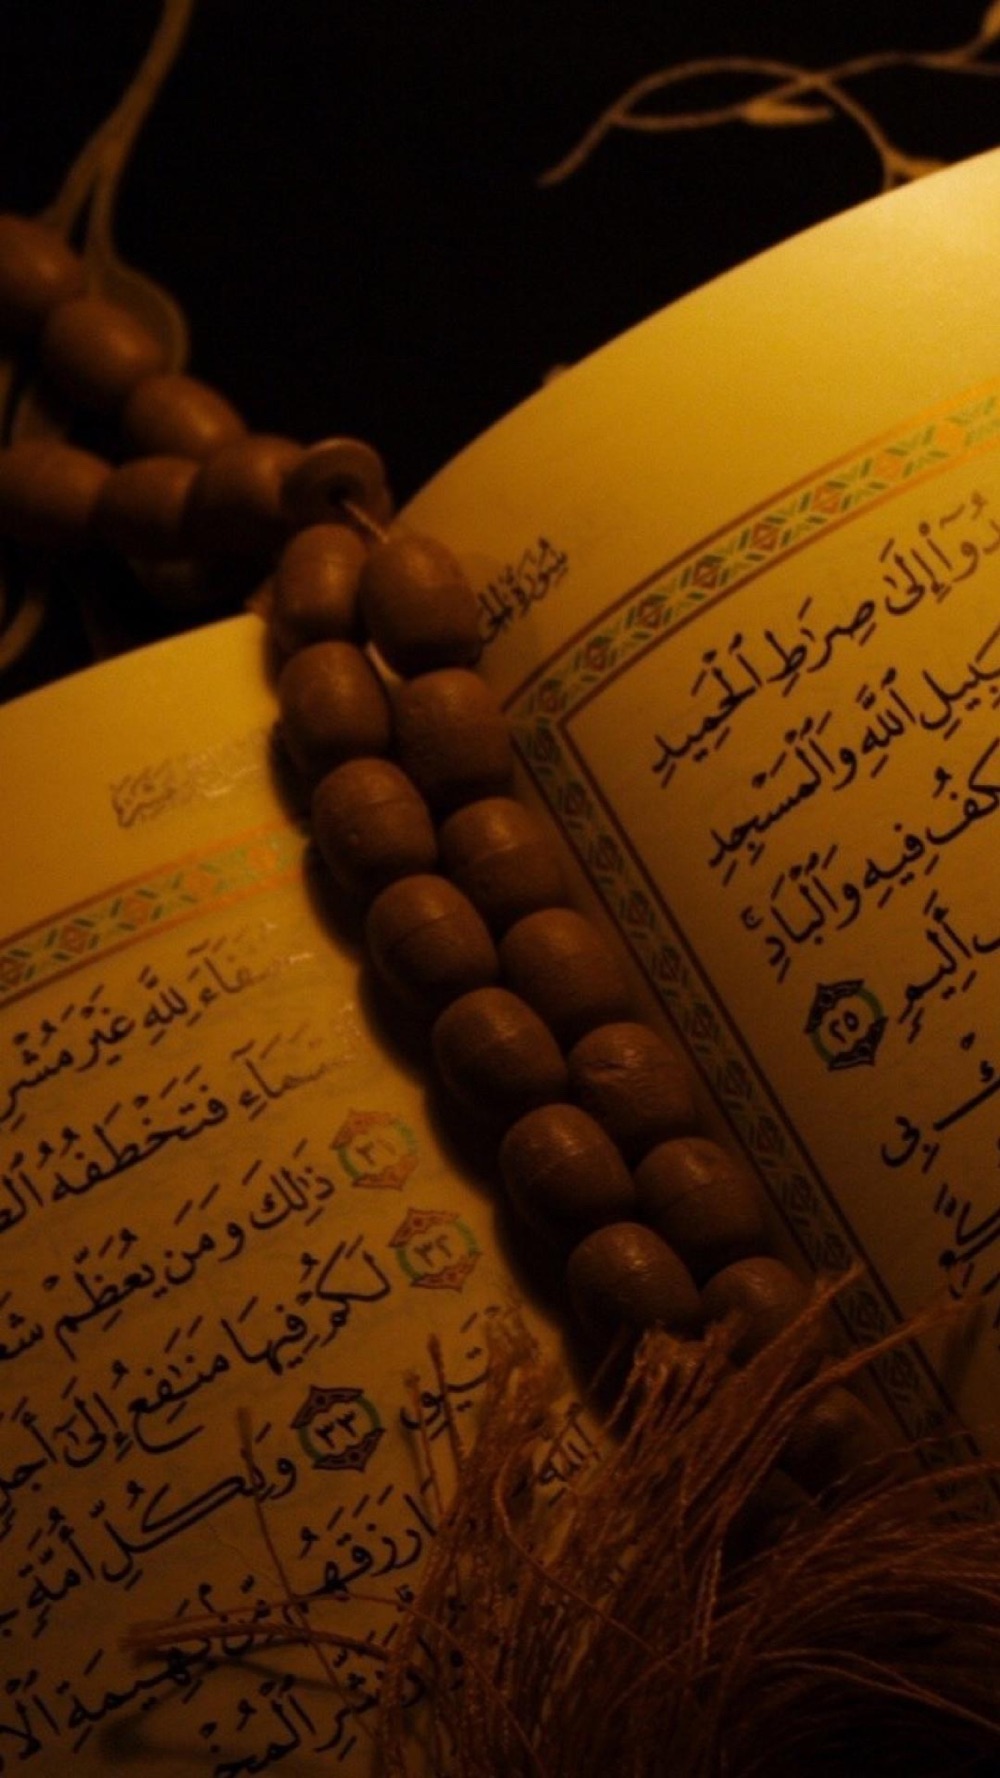 سورة الحج
دُوٓاْ إِلَىٰ صِرَٰطِ ٱلْحَمِيدِ
سَبِيلِ ٱللَّهِ وَٱلْمَسْجِدِ
كِفُ فِيهِ وَٱلْبَادِۚ
أَلِيمٍ ٢٥
بِى
حُنَفَآءَ لِلَّهِ غَيْرَ مُشْرِ
ٱلسَّمَآءِ فَتَخْطَفُهُ ٱلط
٣١ ذَٰلِكَ وَمَن يُعَظِّمْ شَعَ
٣٢ لَكُمْ فِيهَا مَنَٰفِعُ إِلَىٰٓ أَجَلٍ
تِيقِ ٣٣ وَلِكُلِّ أُمَّةٍ جَ
ٱللَّهِ
مَا رَزَقَهُم مِّنۢ بَهِيمَةِ ٱلْأَ
وَبَشِّرِ ٱلْمُخْ